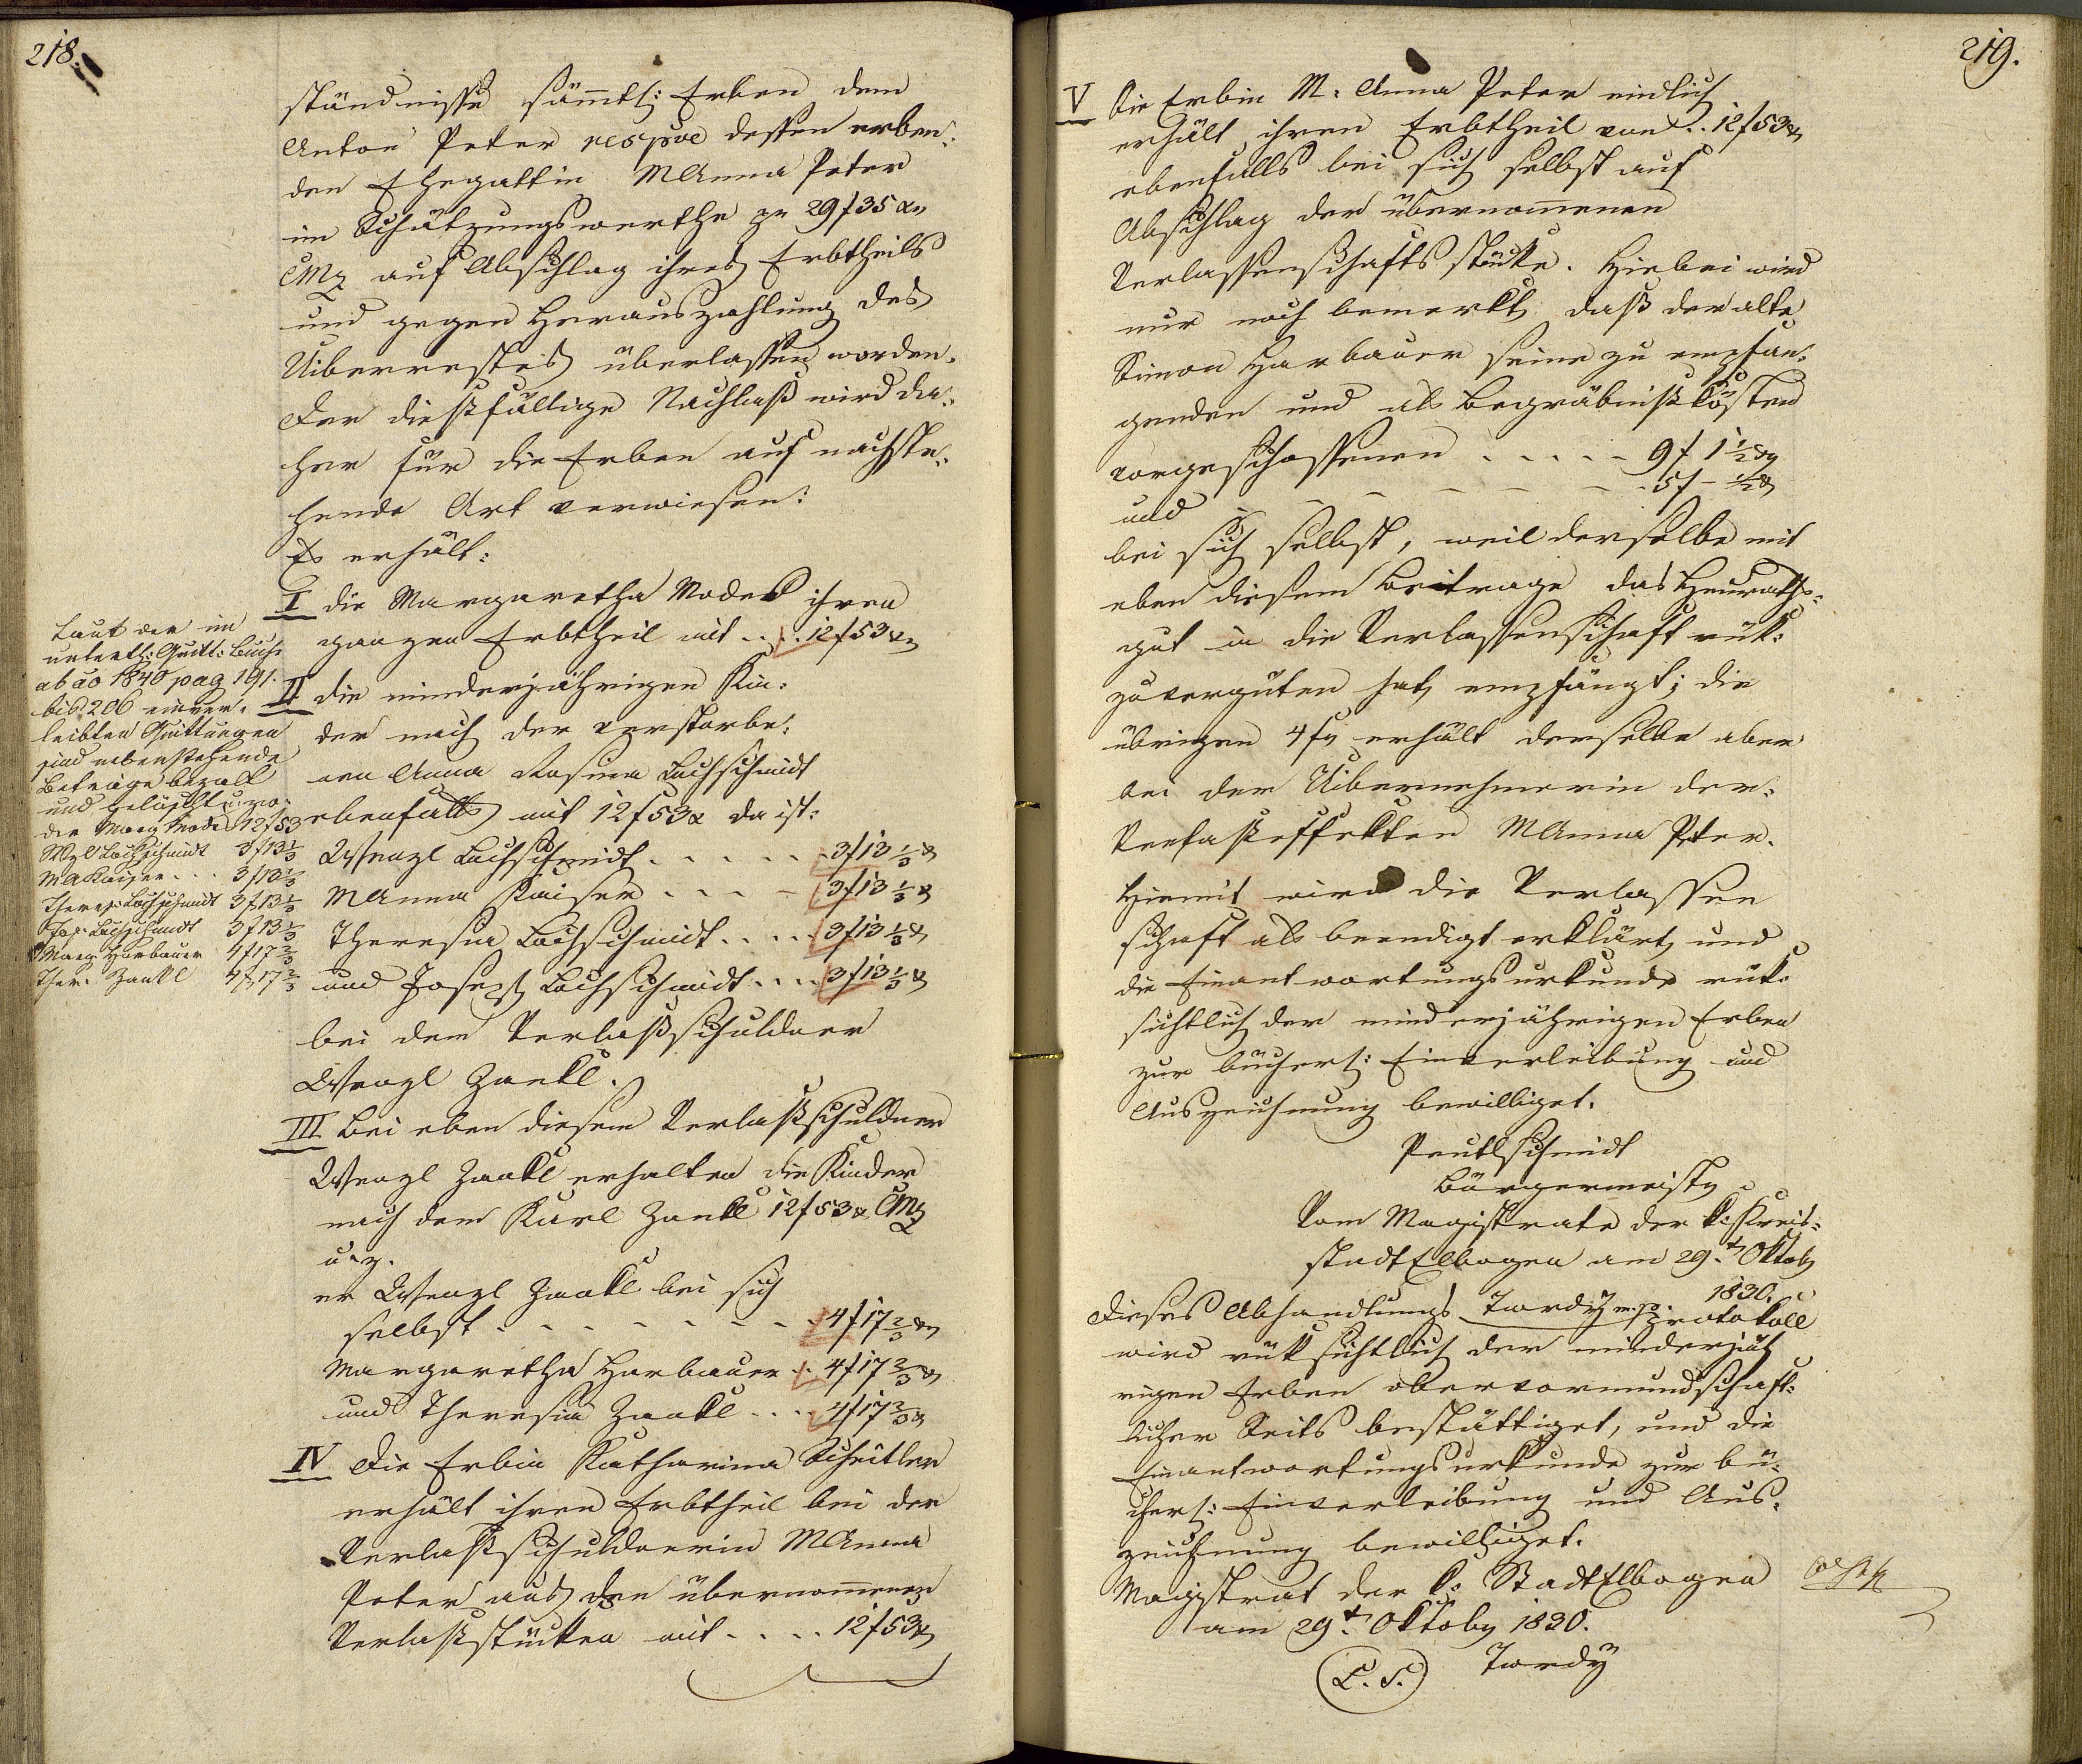 218.
ständnisse sämtl: Erben dem
Anton Peter respve dessen erben:
den Ehegattin MAnna Peter
im Schätzungswerthe zu 29 f 35 x
CMz auf Abschlag ihres Erbtheils
und gegen Herauszahlung des
Uiberrestes überlassen worden.
Der dießfällige Nachlaß wird da:
her für die Erben auf nachste:
hende Art verwiesen:
Es erhält:
I die Margaretha Moder ihren
ganzen Erbtheil mit . . . 12 f 53 x
II die minderjährigen Kin:
der nach der verstorbe:
nen Anna Rosina Lochschmidt
ebenfalls mit 12 f 53 x da ist:
Wenzl Lochschmidt . . . . . 3 f 13 1/3 x
MAnna Kaiser . . . . 3 f 13 1/3 x
Theresia Lochschmidt . . . . 3 f 13 1/3 x
und Joseph Lochschmidt . . . 3 f 13 1/3 x
bei dem Verlaßschuldner
Wenzl Zankl.
III Bei eben diesem Verlaßschuldner
Wenzl Zankl erhalten die Kinder
nach dem Karl Zankl 12 f 53 x CMz
u. z.
er Wenzl Zankl bei sich
selbst . . . . . . . 4 f 17 2/3 x
Margaretha Harbauer . . 4 f 17 2/3 x
und Theresia Zankl . . . 4 f 17 2/3 x
IV Die Erbin Katharina Scheitler
erhält ihren Erbtheil bei der
Verlaßschuldnerin MAnna
Peter aus den übernomenen
Verlaßstücken mit . . . . 12 f 53 x
Laut der im
unterth: Quitt: Buche
ab ao 1840 pag 191.
bis 206 einver:
leibten Quittungen
sind nebenstehende
Beträge bezalt
und gelöscht u: zw:
der Marg Moder 12 f 53
Wzl Lochschmidt 3 f 13 1/3
MA Kaiser . . . 3 f 13 1/3
Theres: Lochschmidt 3 f 13 1/3
Jos: Lochschmidt 3 f 13 1/3
Marg Harbauer 4 f 17 2/3
Ther. Zankl 4 f 17 2/3
219.
V Die Erbin M: Anna Peter endlich
erhält ihren Erbtheil von . . 12 f 53 x
ebenfalls bei sich selbst auf
Abschlag der übernomenen
Verlassenschafts stücke. Hiebei wird
nur noch bemerkt, daß der alte
Simon Harbauer seine zu empfan:
genden und als Begräbnißkösten
vorgeschossenen . . . . . 9 f 1 1/2 x
und – – – – – – 5 f – 1/2 x
bei sich selbst, weil derselbe mit
eben diesem Beitrage das Heuraths:
gut in die Verlassenschaft rük:
zuvergüten hat, empfängt; die
übrigen 4 f erhält derselbe aber
bei der Uibernehmerin der:
Verlaßeffekten MAnna Peter.
Hiemit wird die Verlassen
schaft als beendigt erklärt, und
die Einantwortungsurkunde rük:
sichtlich der minderjährigen Erben
zur bücherl: Einverleibung und
Auszeichnung bewilliget.
Peutlschmidt
Bürgermeister
Vom Magistrate der k: Kreis:
stadt Elbogen am 29.t Oktob
1830.
Dieses Abhandlungs Tordy m. p. protokoll
wird rüksichtlich der minderjäh
rigen Erben obervormundschaft:
licher Seits bestättiget, und die
Einantwortungsurkunde zur bü:
cherl: Einverleibung und Aus:
zeichnung bewilliget.
Magistrat der k: Stadt Elbogen
am 29t. Oktober 1830.
(L. S.) Tordy